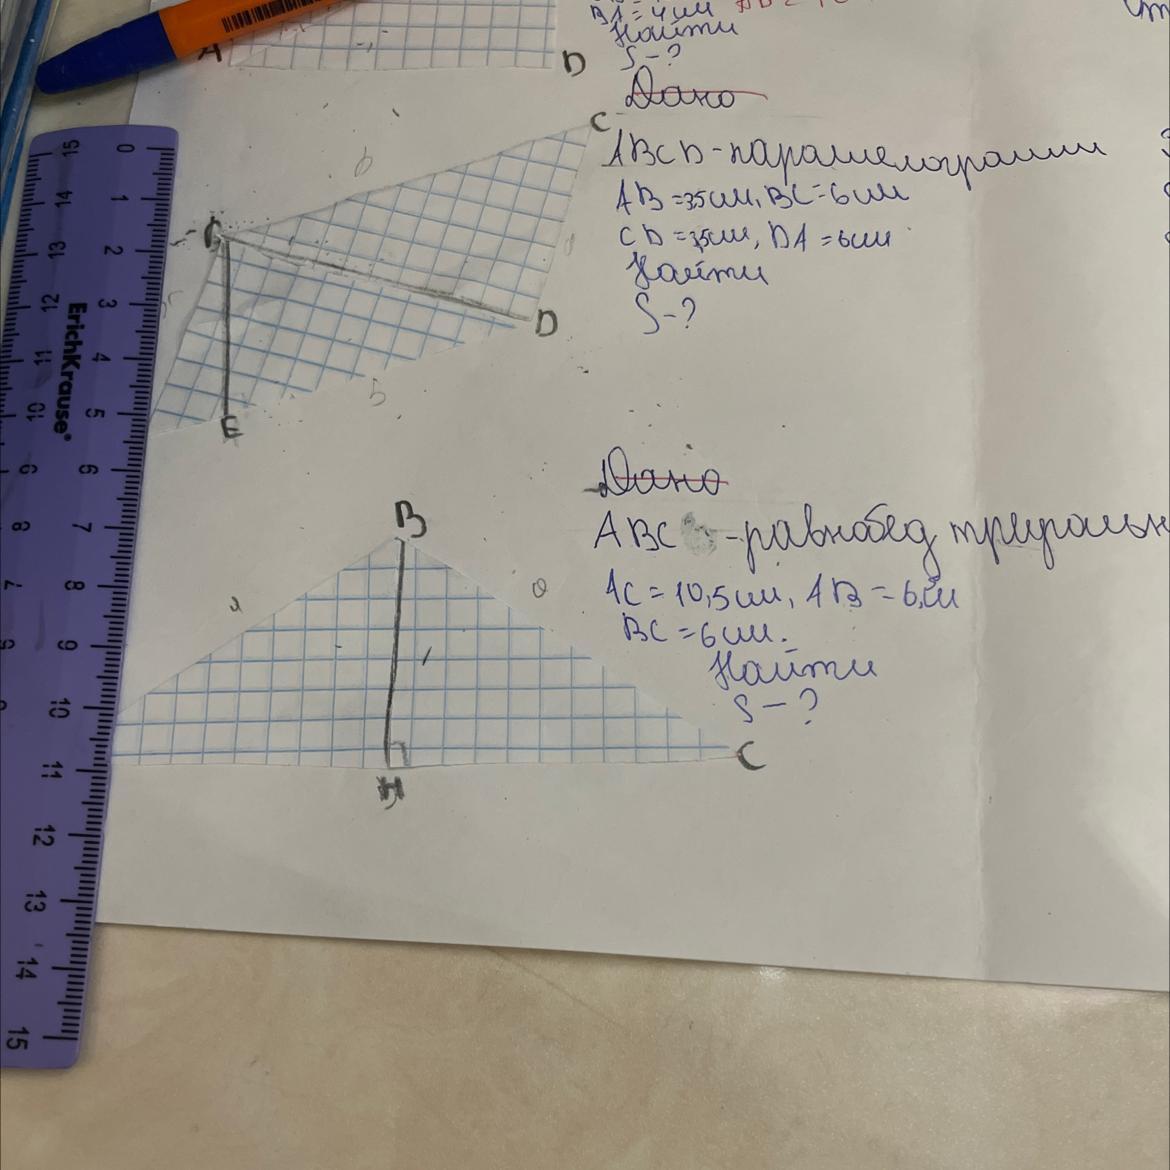 A
D
ВА = 4 см
Найти
S - ?
Дано
C
ABCD - параллелограмм
AB = 3,5 см, BC = 6 см
CD = 3,5 см, DA = 6 см
Найти
S - ?
D
E
0 1 2 3 4 5 6 7 8 9 10 11 12 13 14 15
ErichKrause®
Дано
ABC - равнобед треугольн
AC = 10,5 см, AB = 6 см
BC = 6 см.
Найти
S - ?
B
H
C